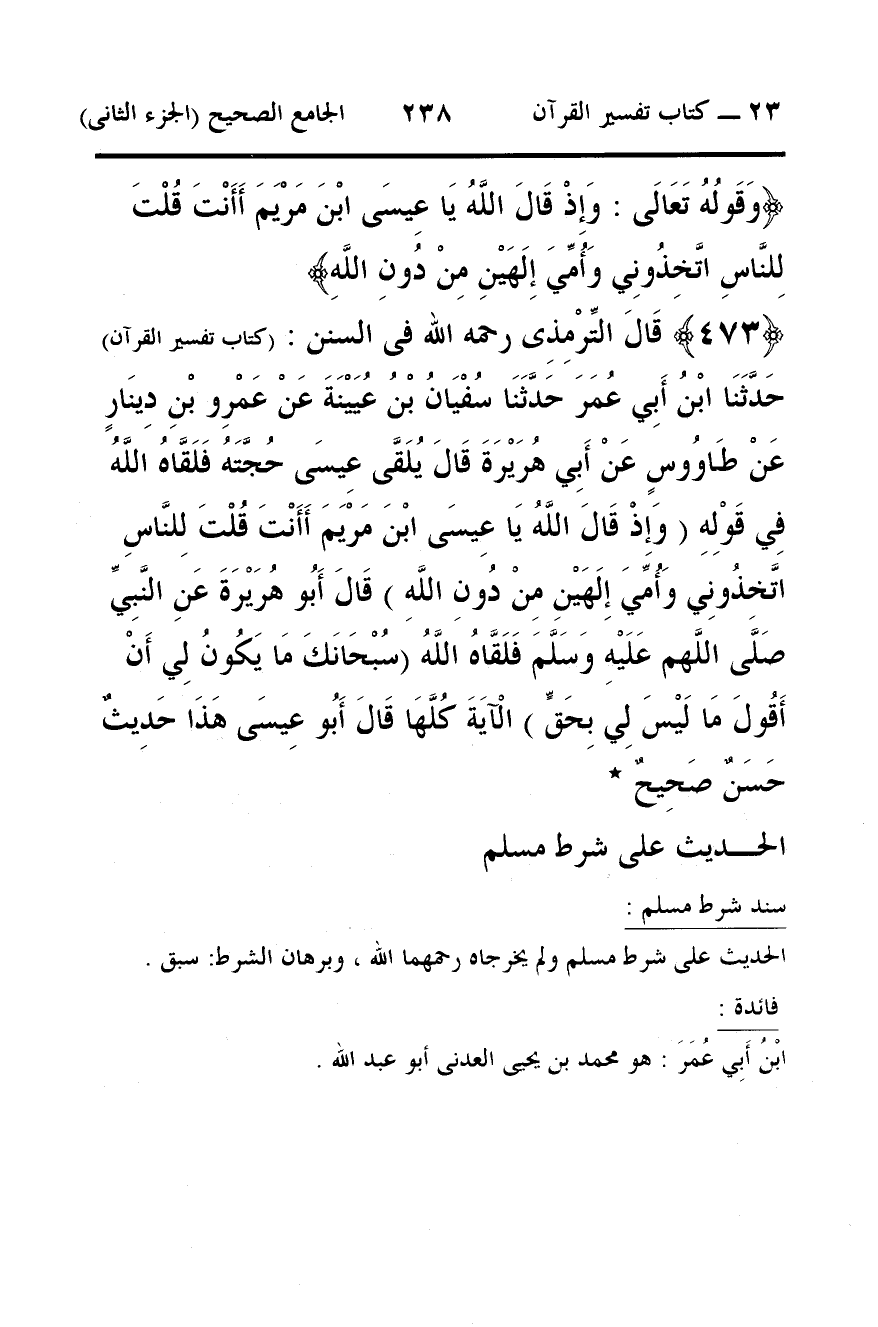 ٢٣ ــ كتاب تفسير القرآن ٢٣٨ الجامع الصحيح (الجزء الثانى)
﴿وَقَوْلُهُ تَعَالَى : وَإِذْ قَالَ اللَّهُ يَا عِيسَى ابْنَ مَرْيَمَ أَأَنْتَ قُلْتَ
لِلنَّاسِ اتَّخِذُونِي وَأُمِّيَ إِلَهَيْنِ مِنْ دُونِ اللَّهِ﴾
﴿٤٧٣﴾ قَالَ التِّرْمِذِى رحمه الله فى السنن : (كتاب تفسير القرآن)
حَدَّثَنَا ابْنُ أَبِي عُمَرَ حَدَّثَنَا سُفْيَانُ بْنُ عُيَيْنَةَ عَنْ عَمْرِو بْنِ دِينَارٍ
عَنْ طَاوُوسٍ عَنْ أَبِي هُرَيْرَةَ قَالَ يُلَقَّى عِيسَى حُجَّتَهُ فَلَقَّاهُ اللَّهُ
فِي قَوْلِهِ ( وَإِذْ قَالَ اللَّهُ يَا عِيسَى ابْنَ مَرْيَمَ أَأَنْتَ قُلْتَ لِلنَّاسِ
اتَّخِذُونِي وَأُمِّيَ إِلَهَيْنِ مِنْ دُونِ اللَّهِ ) قَالَ أَبُو هُرَيْرَةَ عَنِ النَّبِيِّ
صَلَّى اللَّهم عَلَيْهِ وَسَلَّمَ فَلَقَّاهُ اللَّهُ (سُبْحَانَكَ مَا يَكُونُ لِي أَنْ
أَقُولَ مَا لَيْسَ لِي بِحَقٍّ ) الْآيَةَ كُلَّهَا قَالَ أَبُو عِيسَى هَذَا حَدِيثٌ
حَسَنٌ صَحِيحٌ *
الحــديث على شرط مسلم
سند شرط مسلم :
الحديث على شرط مسلم ولم يخرجاه رحمهما الله ، وبرهان الشرط: سبق .
فائدة :
ابْنُ أَبِي عُمَرَ : هو محمد بن يحيى العدنى أبو عبد الله .